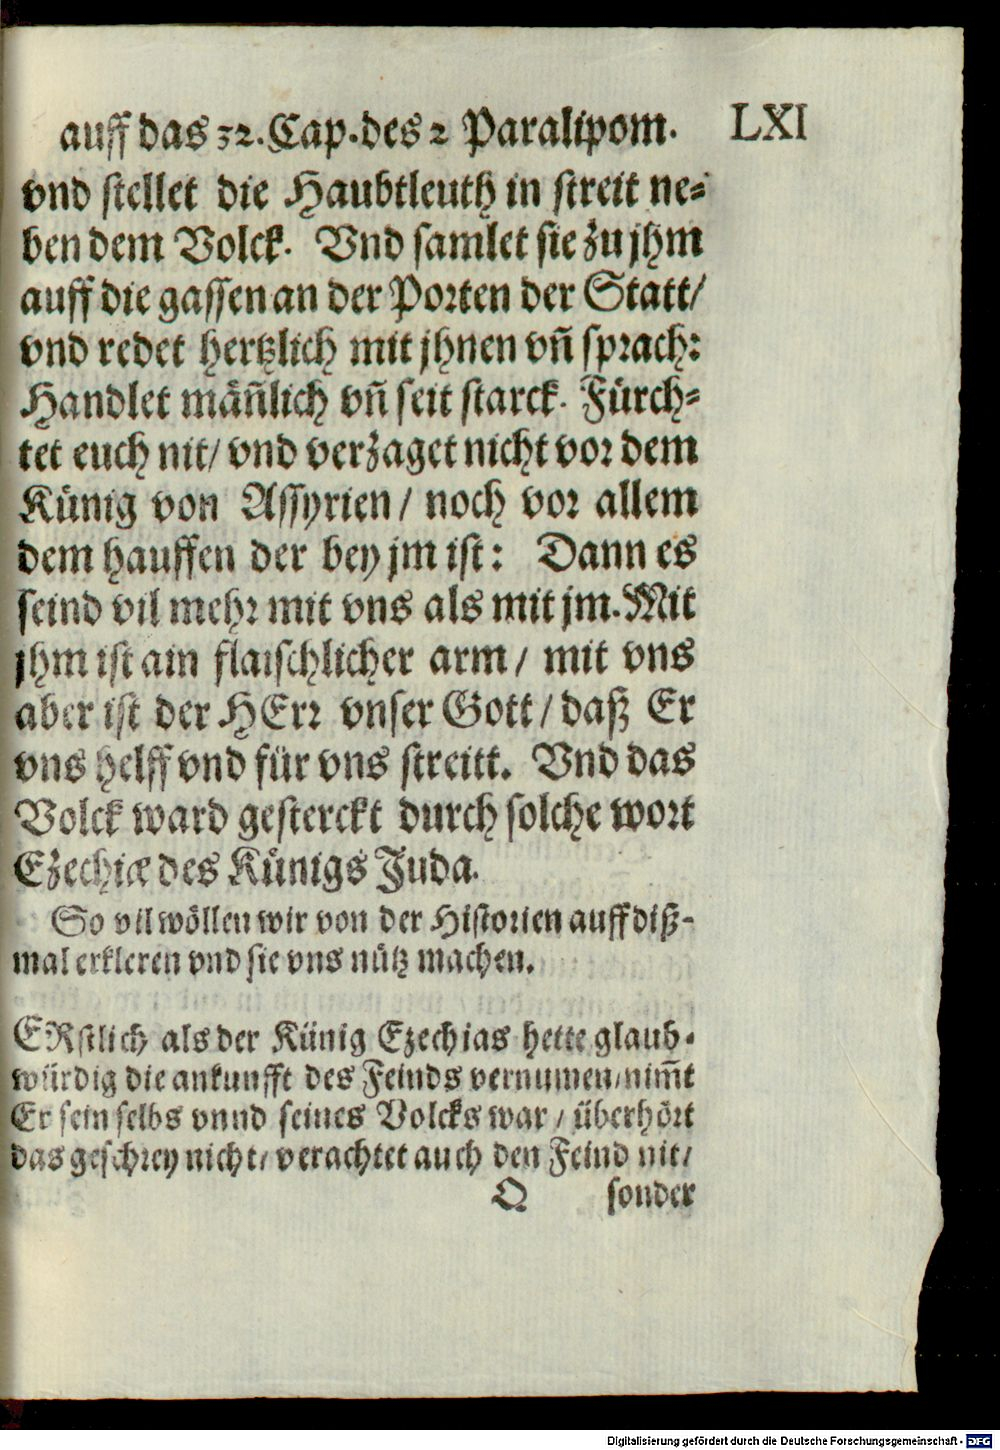 auff das 32. Cap. des 2 Paralipom. LXI
vnd stellet die Haubtleuth in streit ne⸗
ben dem Volck. Vnd samlet sie zu jhm
auff die gassen an der Porten der Statt/
vnd redet hertzlich mit jhnen vñ sprach:
Handlet mäñlich vñ seit starck. Fürch⸗
tet euch nit/ vnd verzaget nicht vor dem
Künig von Assyrien/ noch vor allem
dem hauffen der bey jm ist: Dann es
seind vil mehr mit vns als mit jm. Mit
jhm ist ain flaischlicher arm/ mit vns
aber ist der HErr vnser Gott/ daß Er
vns helff vnd für vns streitt. Vnd das
Volck ward gesterckt durch solche wort
Ezechiæ des Künigs Juda.
So vil wöllen wir von der Historien auff diß-
mal erkleren vnd sie vns nütz machen.
ERstlich als der Künig Ezechias hette glaub-
würdig die ankunfft des Feinds vernumen/ nim̃t
Er sein selbs vnnd seines Volcks war/ überhört
das geschrey nicht/ verachtet auch den Feind nit/
Q sonder
Digitalisierung gefördert durch die Deutsche Forschungsgemeinschaft - DFG